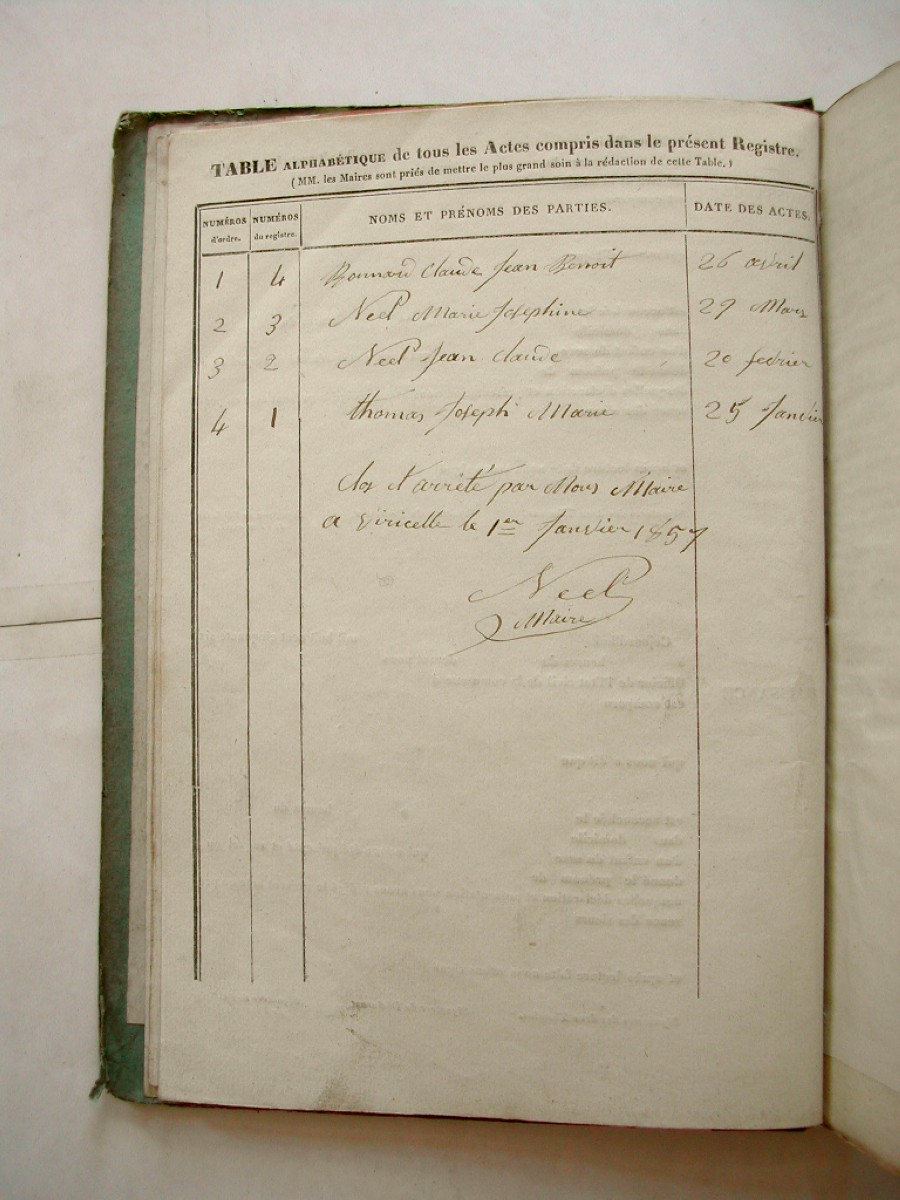 TABLE ALPHABÉTIQUE de tous les Actes compris dans le présent Registre.
( MM. les Maires sont priés de mettre le plus grand soin à la rédaction de cette Table. )
NUMÉROS d'ordre. NUMÉROS du registre. NOMS ET PRÉNOMS DES PARTIES. DATE DES ACTES.
1 4 Bonnard Claude Jean Benoit 26 avril
2 3 Néel Marie Josephine 29 Mars
3 2 Néel Jean Claude 20 fevrier
4 1 thomas Joseph Marie 25 Janvier
clos et arrêté par Nous Maire
a viricelle le 1er Janvier 1857
Néel
Maire